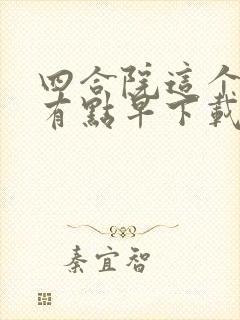 四合院這个
有點早下載
秦宜智